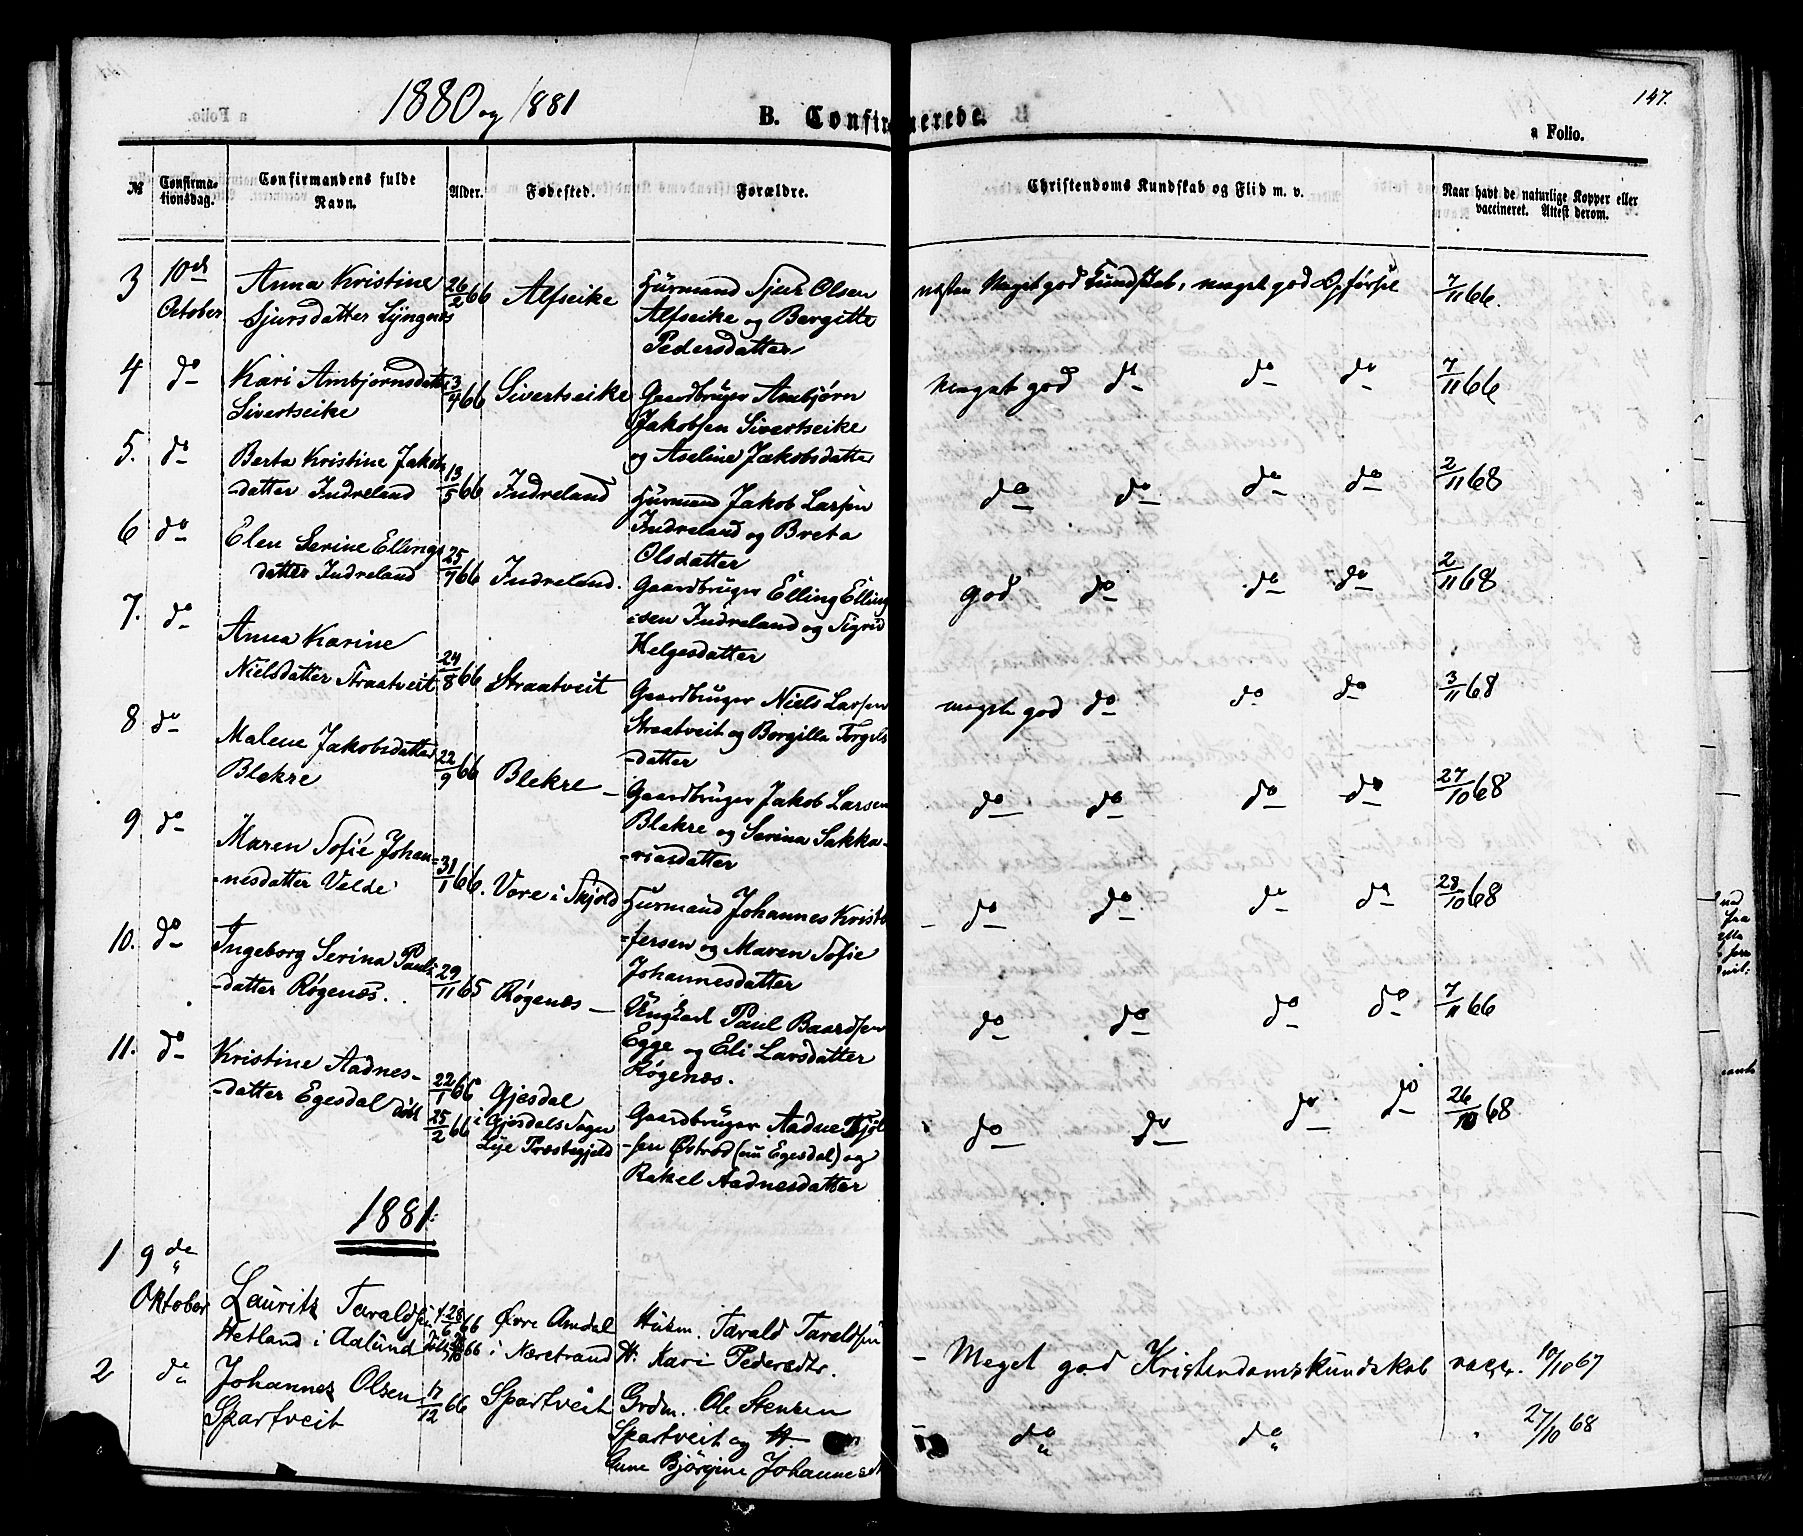 1880 og 1881
B. Confirmerede.
147.
a Folio.
№
Confirma-
tionsdag.
Confirmandens fulde
Navn.
Alder.
Fødested.
Forældre.
Christendoms Kundskab og Flid m. v.
Naar havt de naturlige Kopper eller
vaccineret. Attest derom.
3 10de October
Anna Kristine
Sjursdatter Lyngnes
26/2 66
Alfseike
Huusmand Sjur Olsen
Alfseike og Bergitte
Pedersdatter
næsten Meget god Kundskab, meget god Opførsel
7/11 66.
4 do
Kari Ambjørnsdatter
Sivertseike
13/4 66
Sivertseike
Gaardbruger Ambjørn
Jakobsen Sivertseike
og Aseline Jakobsdatter
Meget god do do do
7/11 66
5. do
Berta Kristine Jakobs
-datter Indreland
13/5 66
Indreland
Huusmand Jakob Larsen
Indreland og Breta
Olsdatter
do do do do
2/11 68
6 do
Elen Serine Ellings
datter Indreland
25/7 66
Indreland.
Gaardbruger Elling Elling
-sen Indreland og Sigrid
Helgesdatter
god do do do
2/11 68
7. do
Anna Karine
Nielsdatter Straatveit
24/8 66
Straatveit
Gaardbruger Niels Larsen
Straatveit og Borgilla Torgels
-datter
meget god do do do
3/11 68
8 do
Malene Jakobsdatter
Blekre
22/9 66
Blekre
Gaardbruger Jakob Larsen
Blekre og Serina Sakka-
-riasdatter
do do do do
27/10 68
9 do
Maren Sofie Johan-
-nesdatter Velde
31/1 66.
Vore i Skjold
Huusmand Johannes Kristo
-fersen og Maren Sofie
Johannesdatter
do do do do
28/10 68
10. do
Ingeborg Serina Pauls
-datter Røgenæs.
29/11 65
Røgenæs
Ungkarl Paul Baardsen
Egge og Eli Larsdatter
Røgenæs.
do do do do
7/11 66
11. do
Kristine Aadnes-
-datter Egesdal døbt
22/1 66
25/2 66
Gjesdal
i Gjesdals Sogn
Lye Præstegjeld
Gaardbruger Aadne
-sen Østrod (nu Egesdal) og
Rakel Aadnesdatter
do do do do
26/10 68
1881.
1 9de Oktober
Lauritz Taraldsen
Hetland i Aalund
28/6 66
Øvre Amdal
i Nærstrand
Husm. Tarald Taraldsen
H. Kari Pedersdtr.
- Meget god Kristendomskundskab vacc. 10/10 67
2 do
Johannes Olsen
Spartveit
17/12 66
Spartveit
Grdm. Ole Stensen
Spartveit og H.
Gune Bjørgine Johannesdt
do do
27/10 68